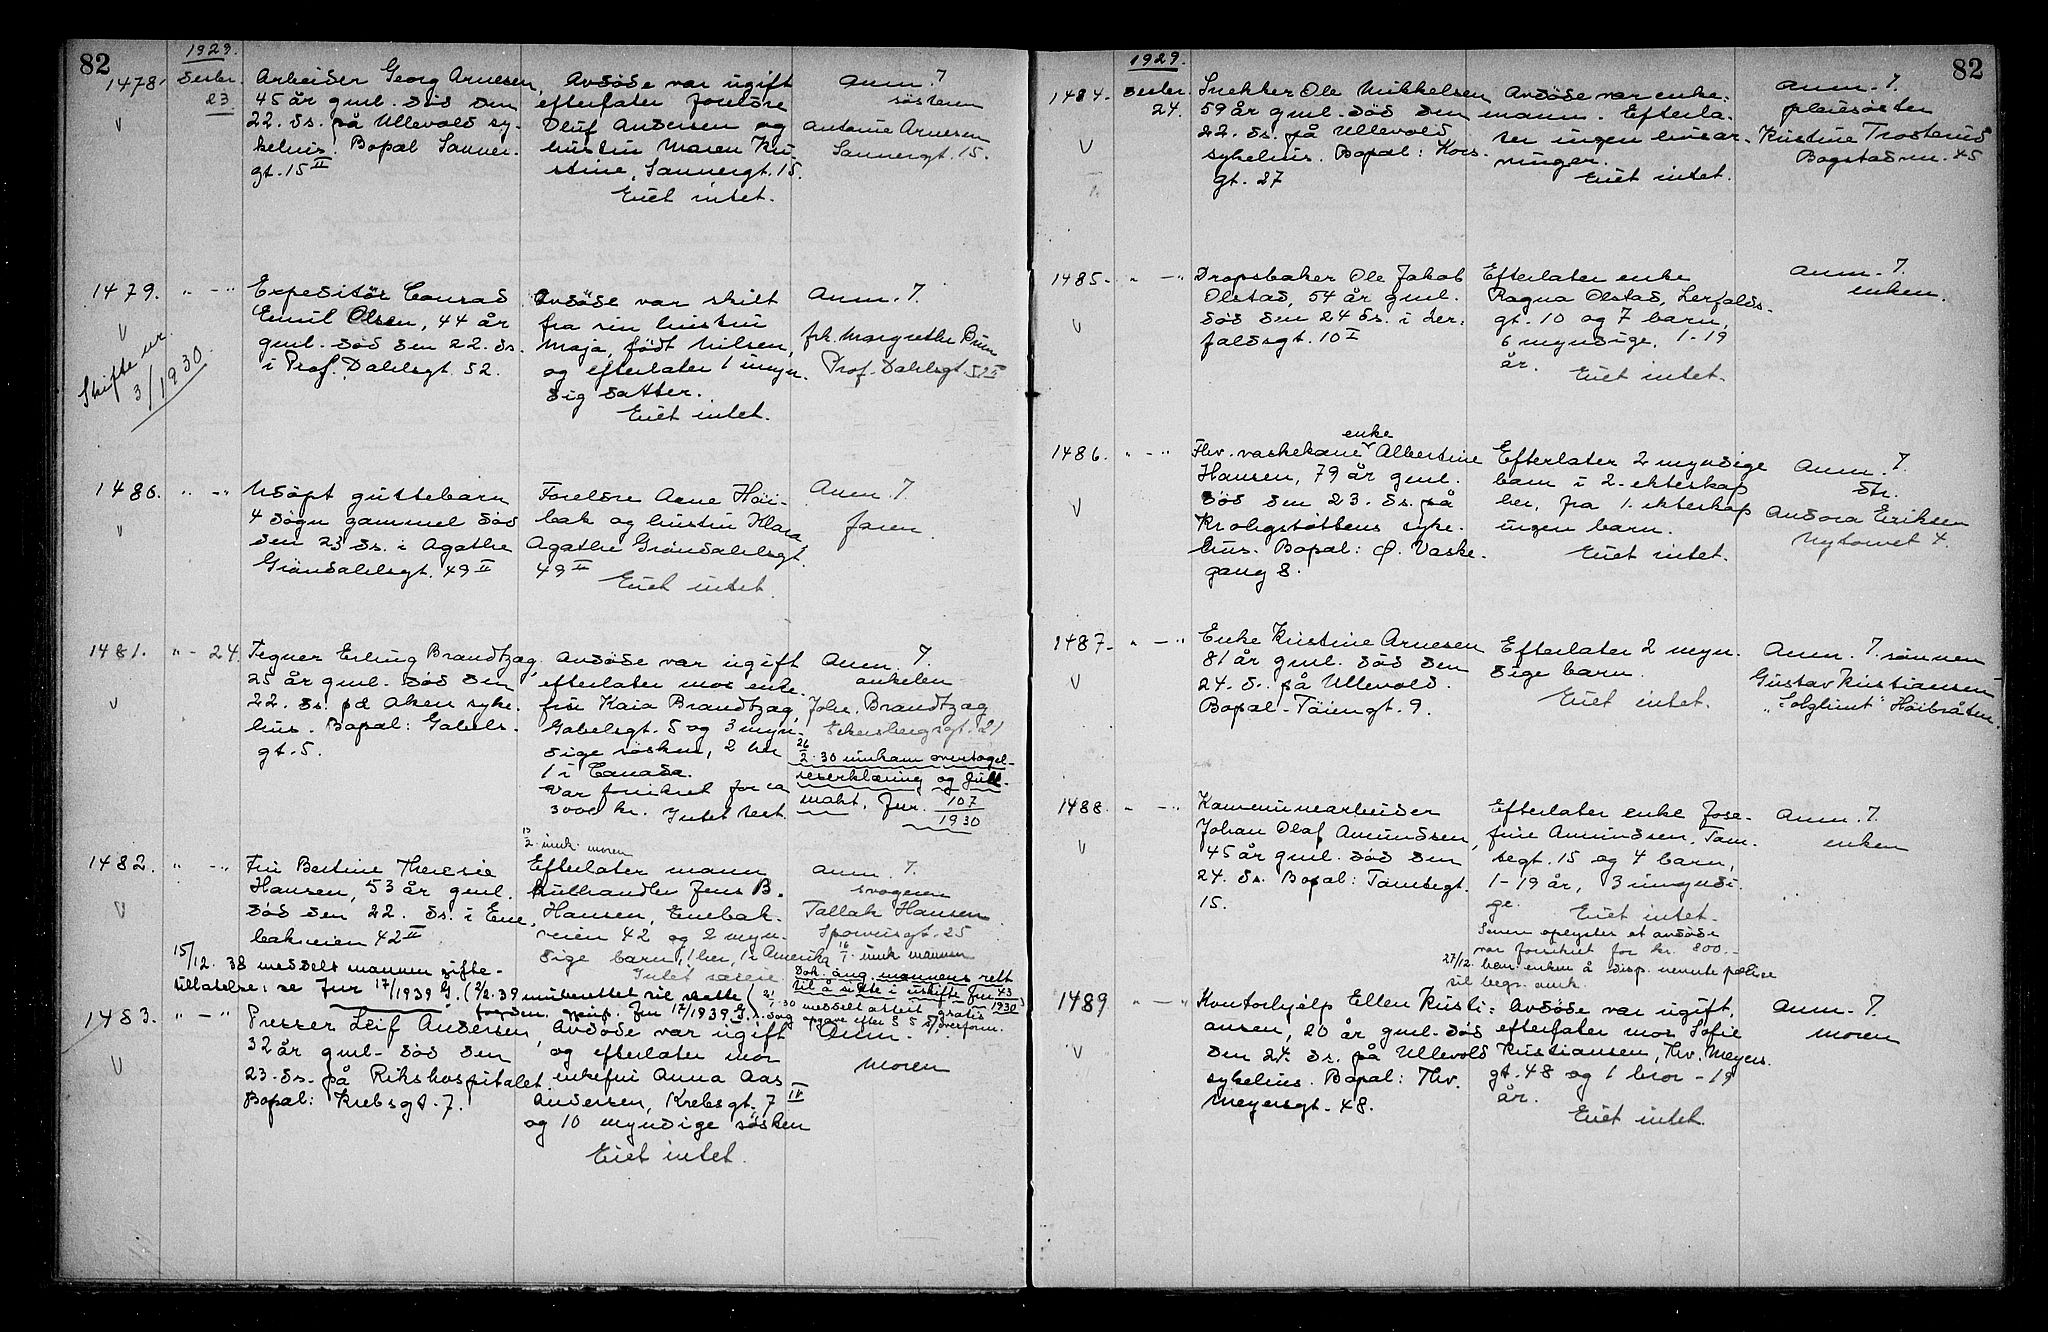 82
1929.
1478. Desbr. 23
Arbeider Georg Arnesen,
45 år gml. død den
22. ds. på Ullevold sy-
kehus. Bopæl Sanner-
gt. 15 II
Avdøde var ugift
efterlater foreldre
Oluf Andersen og
hustru Maren Kri-
stine, Sannergt. 15.
Eiet intet.
Anm. 7
søsteren
Antonie Arnesen
Sannergt. 15.
V
1479. " - "
V
Skifte nr.
3/1930.
Expeditør Conrad
Emil Olsen, 44 år
gml. død den 22. ds.
i Prof. Dahlsgt. 52.
Avdøde var skilt
fra sin hustru
Maja, født Nilsen,
og efterlater 1 umyn-
dig datter.
Eiet intet.
Anm. 7.
frk. Margrethe
Prof. Dahlsgt. 52 II
1480. " - "
V
Udøpt guttebarn
4 døgn gammel død
den 23 ds. i Agathe
Grøndahlsgt. 49 II
Foreldre Arne Høi-
bak og hustru Klara,
Agathe Grøndahlsgt.
49 II
Eiet intet.
Anm. 7.
faren.
1481. " - 24.
V
Tegner Erling Brandtzæg,
25 år gml. død den
22. ds. på Aker syke-
hus. Bopæl: Gabels-
gt. 5.
Avdøde var ugift
efterlater mor enke-
fru Kaia Brandtzæg,
Gabelsgt. 5 og 3 myn-
dige søsken, 2 her
1 i Canada.
Var forsikret for ca
3000 kr. Intet test.
Anm. 7.
onkelen
Johs. Brandtzæg
Eckersbergsgt. 21
26/2.30 innkom overtagel-
seserklæring og full-
makt. Jnr. 107/1930
13/2 innk. moren
1482. " - "
V
Fru Bertine Therese
Hansen, 53 år gml.
død den 22. ds. i Ene-
bakveien 42 II
Efterlater mann
kulhandler Jens B.
Hansen, Enebak-
veien 42 og 2 myn-
dige barn, 1 her, 1 i Amerika
Intet særeie
Anm. 7.
svogeren
Tallak Hansen
Spornisgt. 25
16/1. innk mannen
Dok. ang. mannens rett
til å sitte i uskifte Jnr 43/1930
21/1.30 meddelt attest gratis
15/12. 38 meddelt mannen gifte-
tillatelse; se Jnr 17/1939 G. (2/2.39 innberettet til skifte
1483. " - "
V
Presser Leif Andersen,
32 år gml. død den
23. ds. på Rikshospitalet.
Bopæl: Krebsgt. 7.
Avdøde var ugift
og efterlater mor
enkefru Anna Aas
Andersen, Krebsgt. 7 IV
og 10 myndige søsken
Eiet intet.
Anm. 7.
moren
82
1929.
1484. Desbr. 24.
V
Snekker Ole Mikkelsen
59 år gml. død den
22. ds. på Ullevold
sykehus. Bopæl: Kors-
gt. 27
Avdøde var enke-
mann. Efterla-
ter ingen livsar-
vinger.
Eiet intet.
Anm. 7.
pleiesøster
Kristine Trosterud
Bogstadvn. 45
1485. " - "
V
Dropsbaker Ole Jakob
Olstad, 54 år gml.
død den 24 ds. i Ler-
faldsgt. 10 I
Efterlater enke
Ragna Olstad, Lerfalds-
gt. 10 og 7 barn,
6 myndige, 1 - 19
år. Eiet intet.
Anm. 7.
enken.
1486. " - "
V
enke
Fhv. vaskekone Albertine
Hansen, 79 år gml.
død den 23. ds. på
Krohgstøttens syke-
hus. Bopæl: Ø. Vaske-
gang 8.
Efterlater 2 myndige
barn i 2. ekteskap
her, fra 1. ekteskap
ingen barn.
Eiet intet.
Anm. 7.
dtr.
Andora Eriksen
Nytorvet 4.
1487. " - "
V
Enke Kristine Arnesen
81 år gml. død den
24. ds. på Ullevold.
Bopæl - Tøiengt. 9.
Efterlater 2 myn-
dige barn.
Eiet intet.
Anm. 7. sønnen
Gustav Kristiansen
"Solglimt" Høibråten
1488. " - "
V
Kommunearbeider
Johan Olaf Amundsen,
45 år gml. død den
24. ds. Bopæl: Tomtegt.
15.
Efterlater enke Jose-
fine Amundsen, Tom-
tegt. 15 og 4 barn,
1 - 19 år, 3 umyndi-
ge. Eiet intet.
Senere oplyster at avdøde
var forsikret for kr. 800.-
27/12. bev. enken å disp. nevnte polise
til begr. omk.
Anm. 7.
enken
1489. " - "
V
Kontorhjelp Ellen Kristi-
ansen, 20 år gml. død
den 24. ds. på Ullevold
sykehus. Bopæl: Thv.
Meyersgt. 48.
Avdøde var ugift,
efterlater mor Sofie
Kristiansen, Thv. Meyers-
gt. 48 og 1 bror - 19
år.
Eiet intet.
Anm. 7.
moren